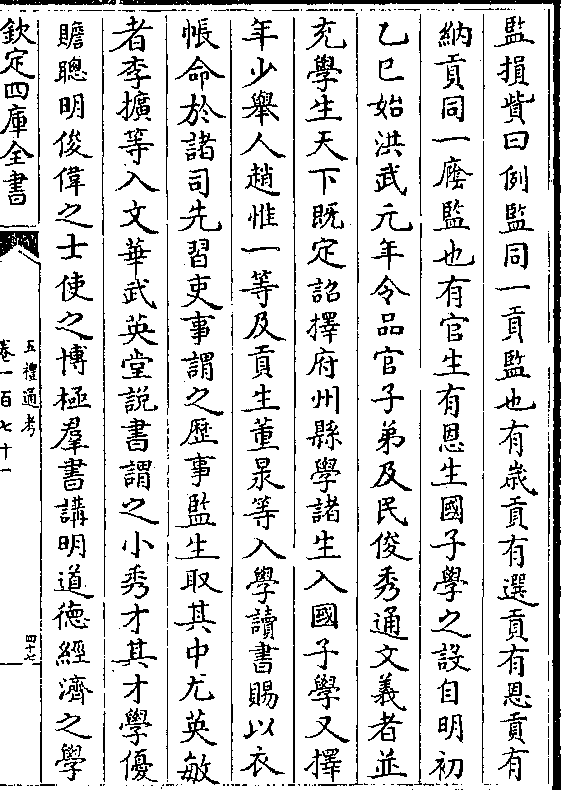 監損貲曰例監同一貢監也有歲貢有選貢有恩貢有
納貢同一廕監也有官生有恩生國子學之設自明初
乙巳始洪武元年令品官子弟及民俊秀通文義者並
充學生天下既定詔擇府州縣學諸生入國子學又擇
年少舉人趙惟一等及貢生董㫤等入學讀書賜以衣
帳命於諸司先習吏事謂之歷事監生取其中尤英敏
者李擴等入文華武英堂説書謂之小秀才其才學優
贍聰明俊偉之士使之博極羣書講明道德經濟之學
欽定四庫全書
五禮通考
卷一百七十一
四十七